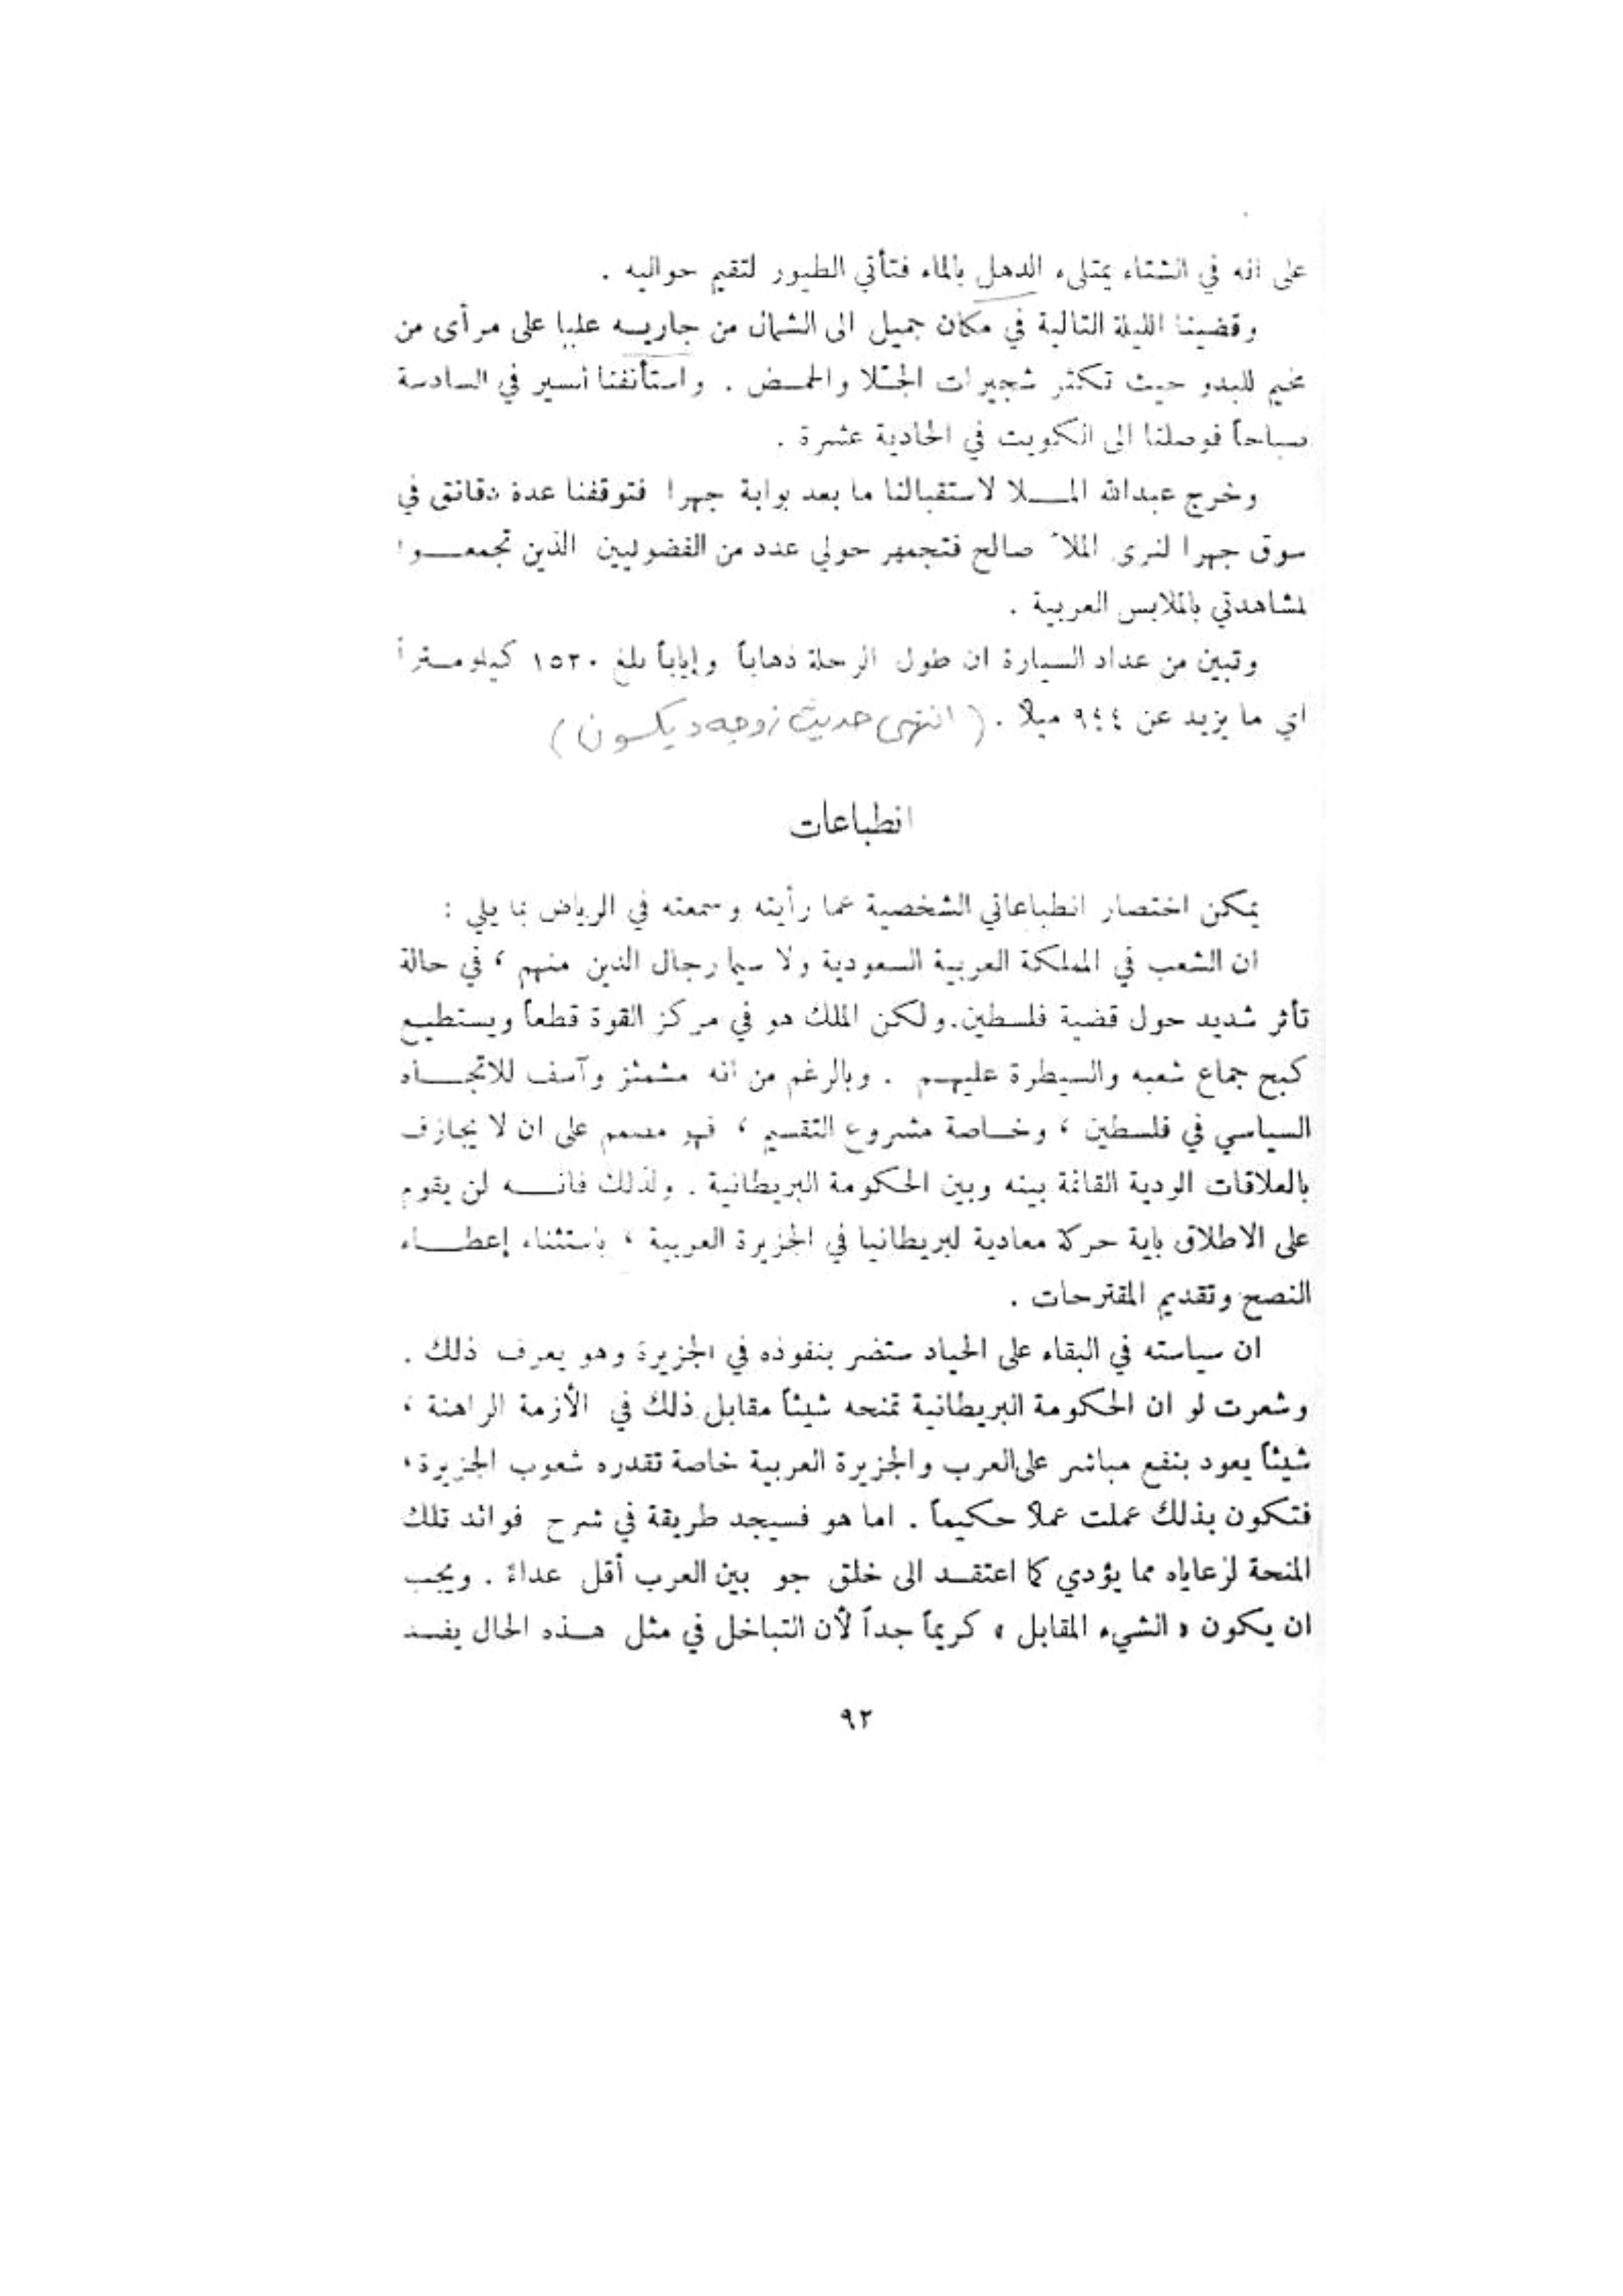 على انه في الشتاء يمتلىء الدهل بالماء فتأتي الطيور لتقيم حواليه .
وقضينا الليلة التالية في مكان جميل الى الشمال من جاريه عليا على مرأى من
مخيم للبدو حيث تكثر شجيرات الجثلا والحمض . واستأنفنا السير في السادسة
صباحاً فوصلنا الى الكويت في الحادية عشرة .
وخرج عبدالله الملا لاستقبالنا ما بعد بوابة جهرا فتوقفنا عدة دقائق في
سوق جهرا لنرى الملا صالح فتجمهر حولي عدد من الفضوليين الذين تجمعوا
لمشاهدتي بالملابس العربية .
وتبين من عداد السيارة ان طول الرحلة ذهاباً وإياباً بلغ ١٥٢٠ كيلومتراً
اي ما يزيد عن ٩٤٤ ميلا . ( انتهى حديث زوجه ديكسون )
انطباعات
يمكن اختصار انطباعاتي الشخصية عما رأيته وسمعته في الرياض بما يلي :
ان الشعب في المملكة العربية السعودية ولا سيما رجال الدين منهم ، في حالة
تأثر شديد حول قضية فلسطين. ولكن الملك هو في مركز القوة قطعاً ويستطيع
كبح جماع شعبه والسيطرة عليهم . وبالرغم من انه مشمئز وآسف للاتجاه
السياسي في فلسطين ، وخاصة مشروع التقسيم ، فهو مصمم على ان لا يجازف
بالعلاقات الودية القائمة بينه وبين الحكومة البريطانية . ولذلك فانه لن يقوم
على الاطلاق باية حركة معادية لبريطانيا في الجزيرة العربية ، باستثناء إعطاء
النصح وتقديم المقترحات .
ان سياسته في البقاء على الحياد ستضر بنفوذه في الجزيرة وهو يعرف ذلك .
وشعرت لو ان الحكومة البريطانية تمنحه شيئاً مقابل ذلك في الأزمة الراهنة ،
شيئاً يعود بنفع مباشر على العرب والجزيرة العربية خاصة تقدره شعوب الجزيرة ،
فتكون بذلك عملت عملا حكيماً . اما هو فسيجد طريقة في شرح فوائد تلك
المنحة لرعاياه مما يؤدي كما اعتقد الى خلق جو بين العرب أقل عداءً . ويجب
ان يكون « الشيء المقابل » كريماً جداً لأن التباخل في مثل هذه الحال يفسد
٩٢